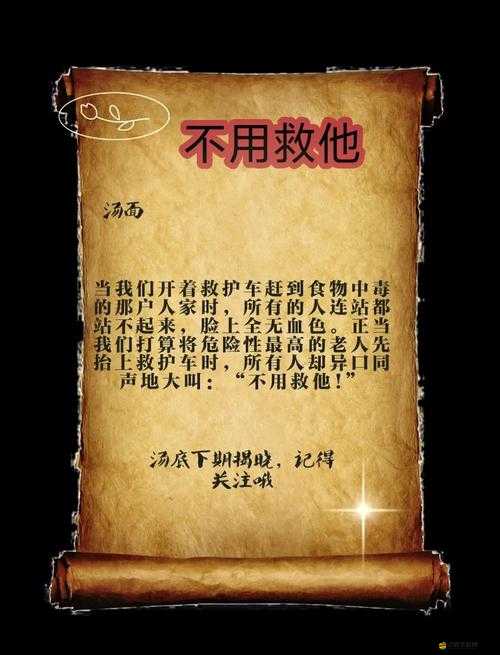 不用救他
汤面
当我们开着救护车赶到食物中毒
的那户人家时，所有的人连站都
站不起来，脸上全无血色。正当
我们打算将危险性最高的老人先
抬上救护车时，所有人却异口同
声地大叫：“不用救他！”
汤底下期揭晓，记得
关注哦